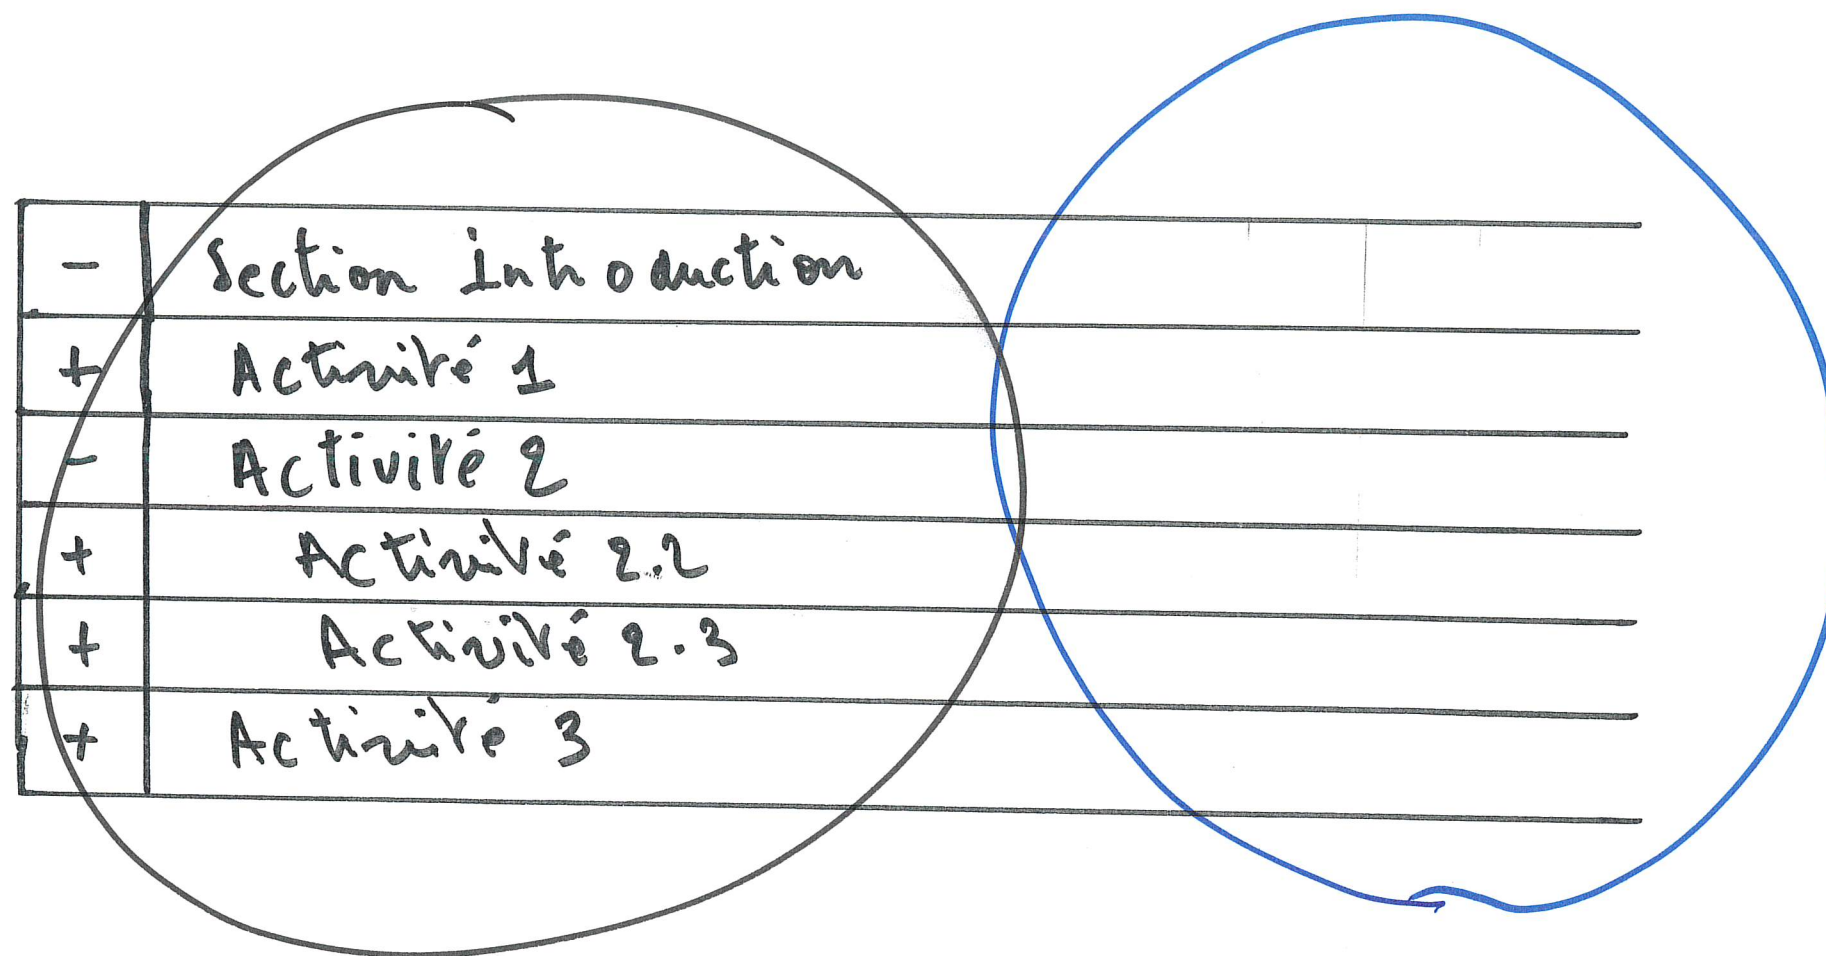 - Section Introduction
+ Activité 1
- Activité 2
+ Activité 2.2
+ Activité 2.3
+ Activité 3